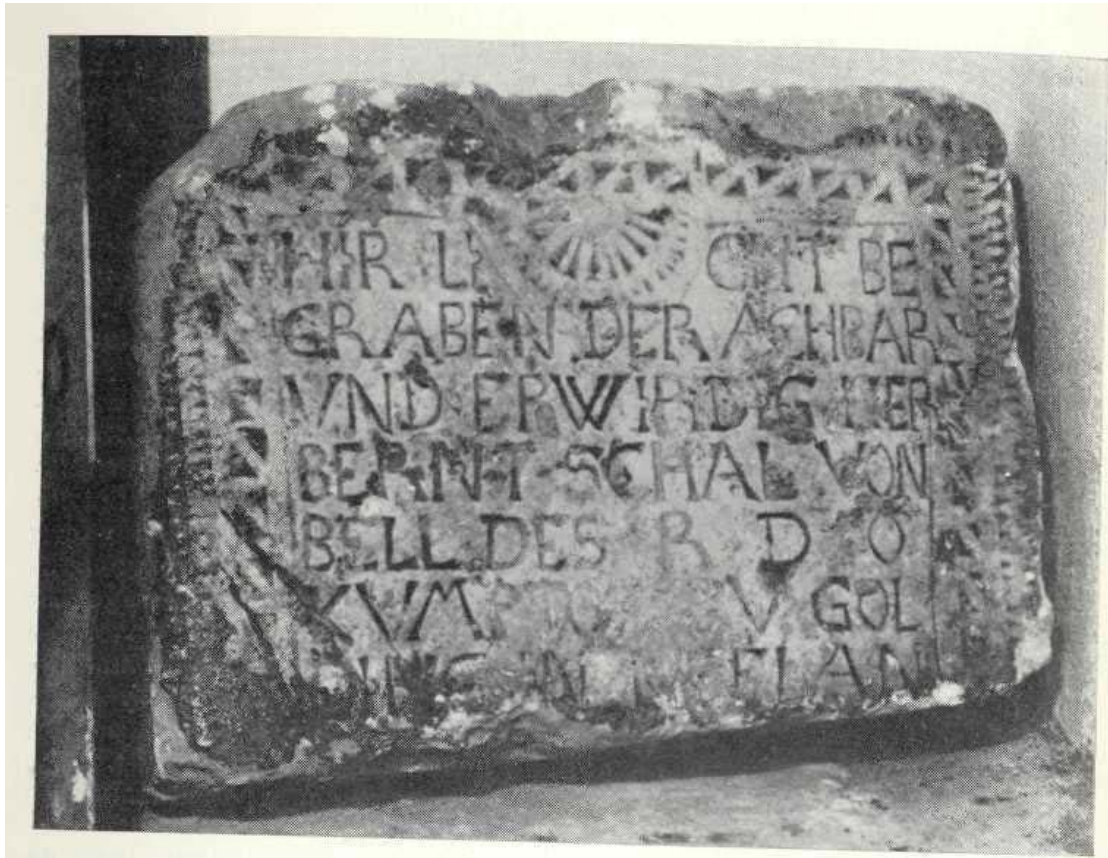 HIR LI CHT BE
GRABEN DER ACHBAR
VND ERWIRDIG HER
BERNT SCHAL VON
BELL DES R D O
KVMPTO V GOL
IN FLAN